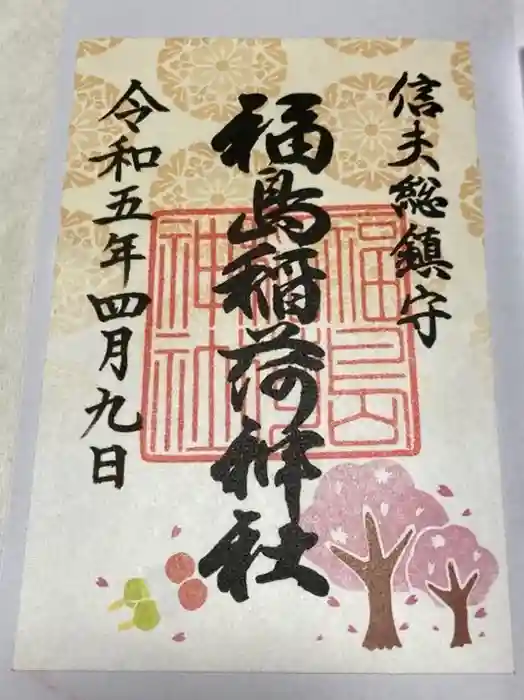 信夫総鎮守
福島稲荷神社
福島稲荷神社
令和五年四月九日